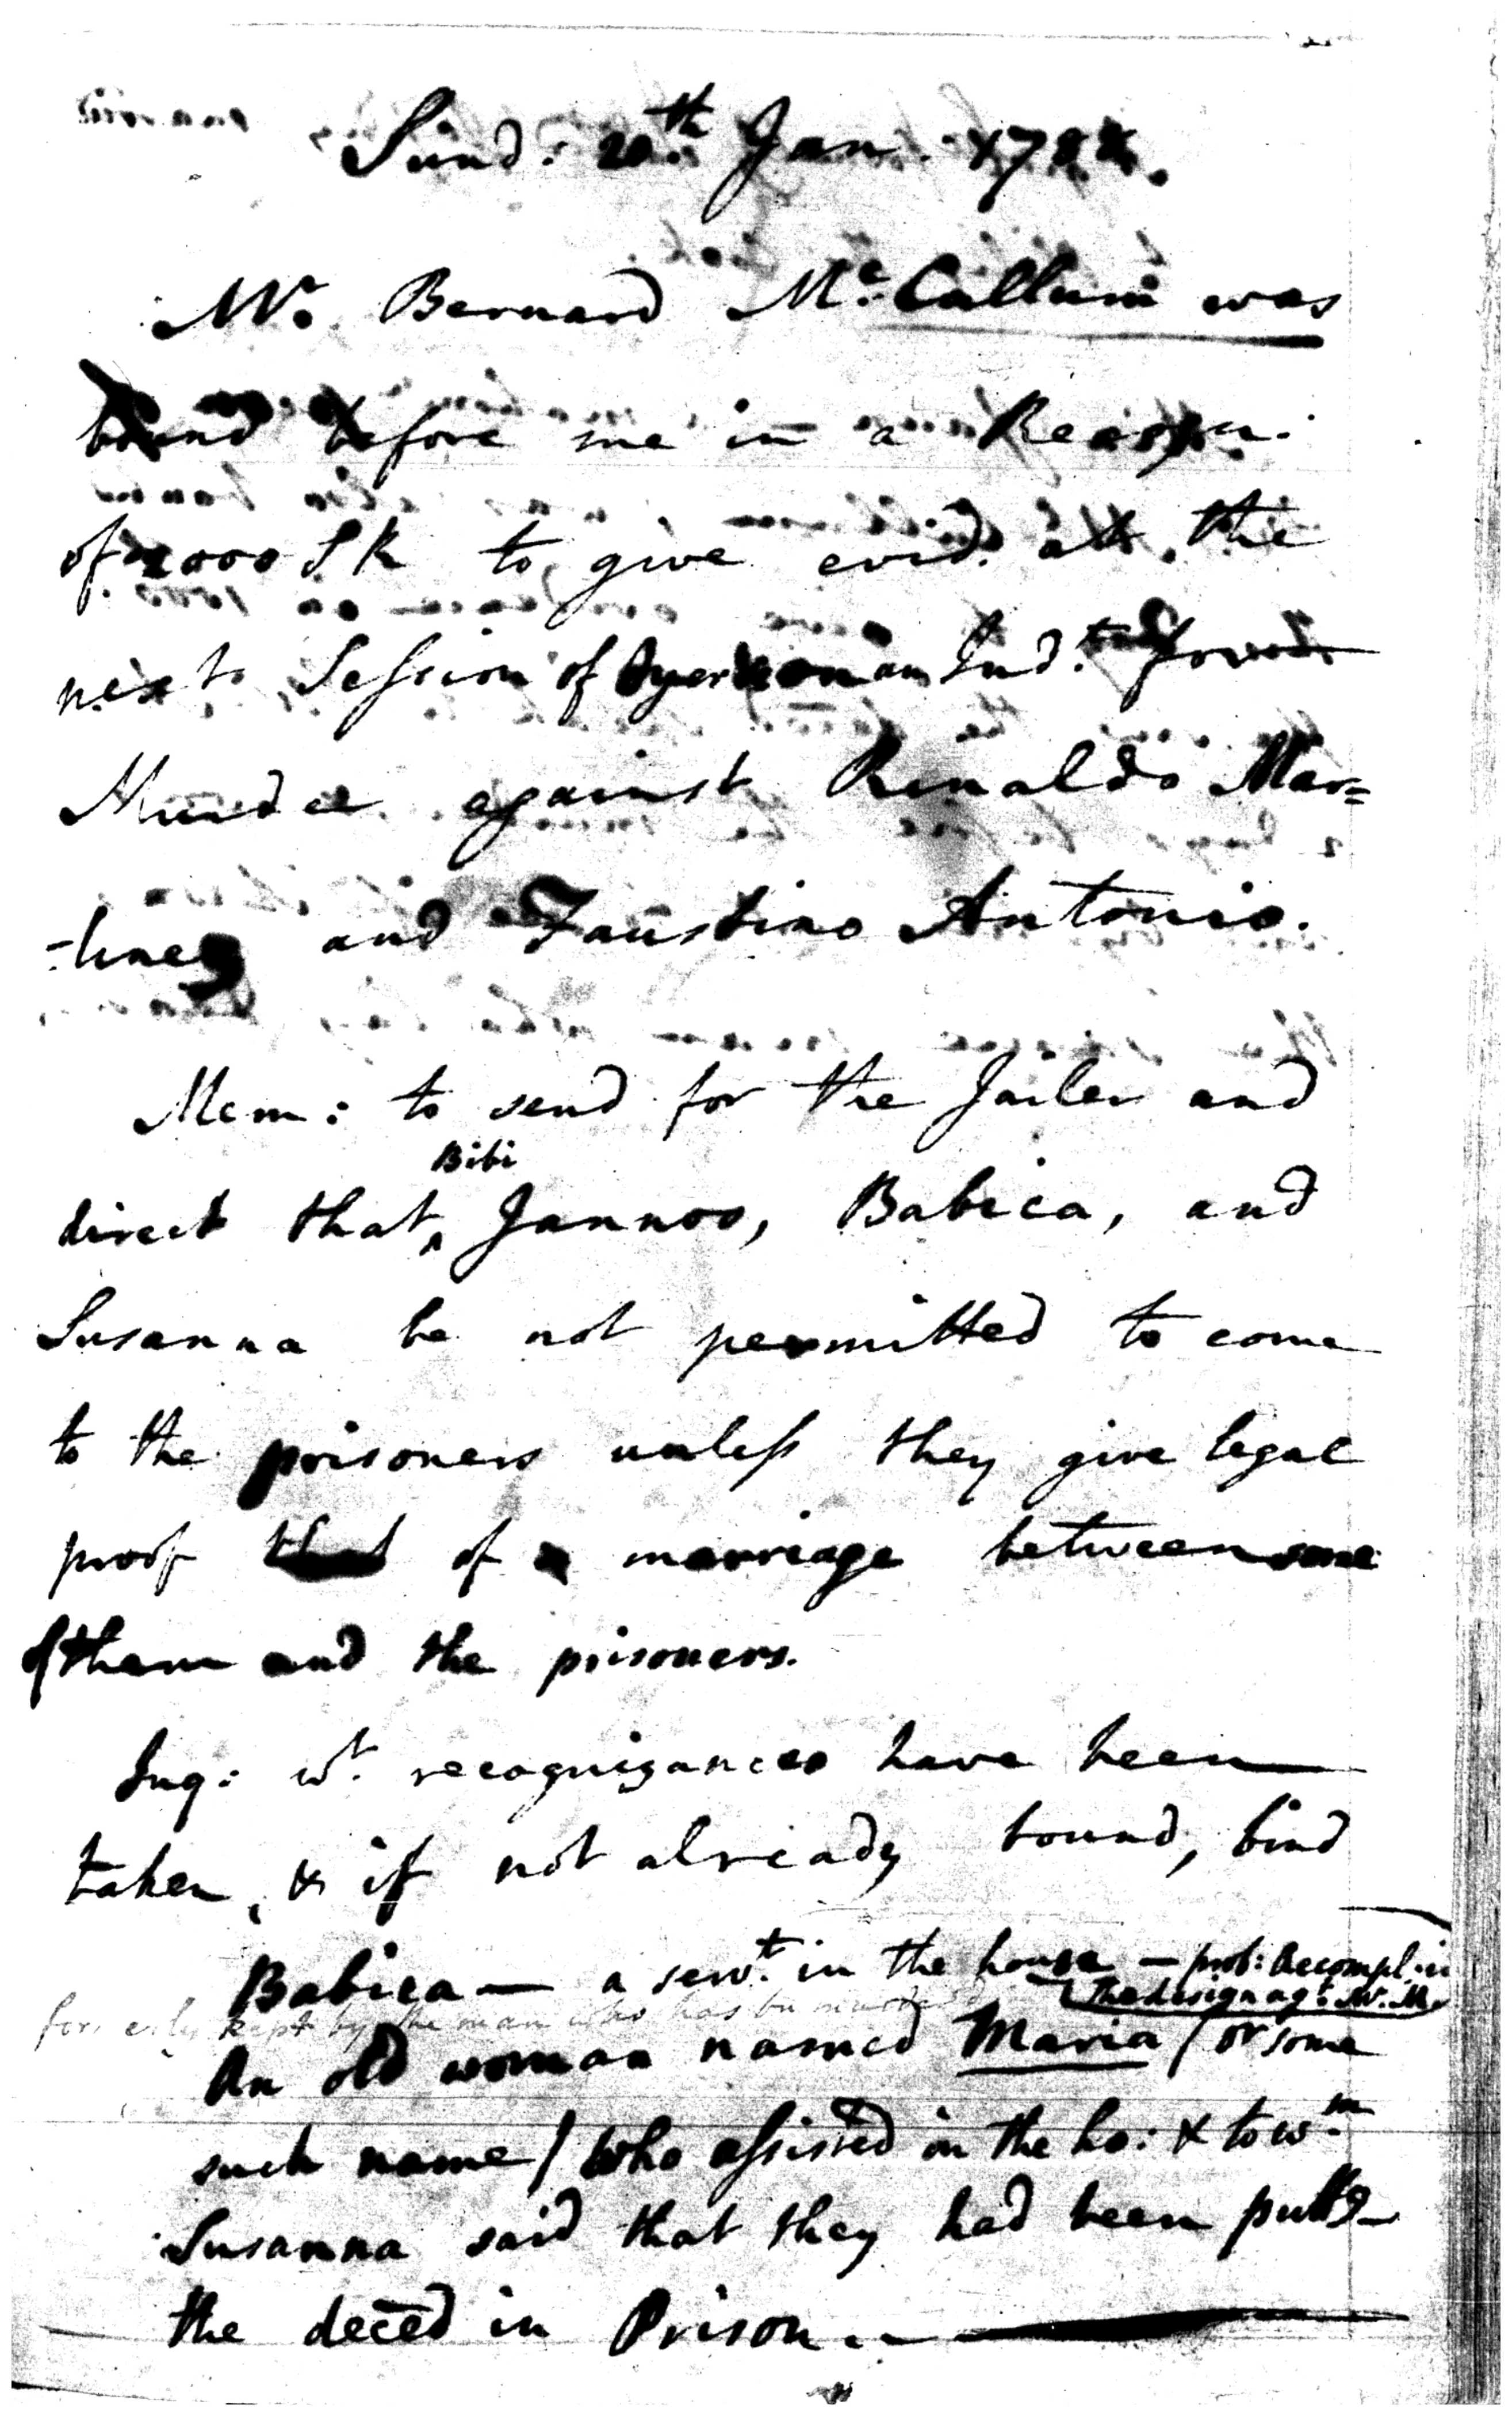 Sund: 20.th Jan. 1788.
Mr. Bernard Mc.Callum was
bound before me in a Recogn.
of 2000 SR to give evid. at the
next Session of Oyer &c on an Ind.t for
Murder against Rinaldo Mar=
-tinez and Faustino Antonio.
Mem: to send for the Jailer and
Bibi
direct that ^ Jannoo, Babica, and
Susanna be not permitted to come
to the prisoners unless they give legal
proof that of a marriage between some
of them and the prisoners.
Inq: wt. recognizances have been
taken, & if not already bound, bind
Babica — a servt. in the house — prob: Accompl. in
the design agt. Mr. M.
formerly kept by the man who has bn
An old woman named Maria (or some
such name) who assisted in the ho: & to wm.
Susanna said that they had been puttg
the deced in Prison.